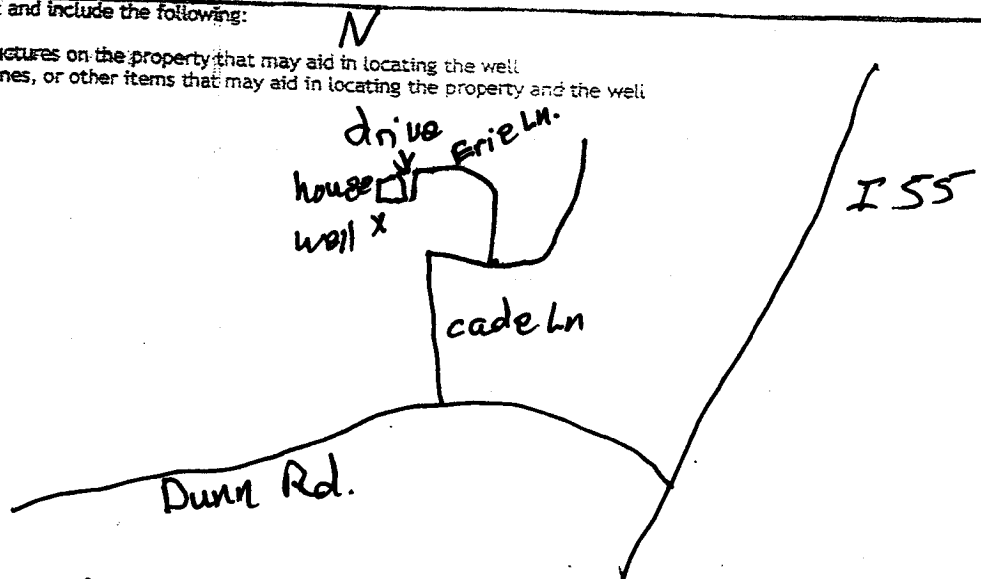 and include the following:
N
uctures on the property that may aid in locating the well
nes, or other items that may aid in locating the property and the well
drive
Erie Ln.
house
I 55
well x
cade Ln
Dunn Rd.